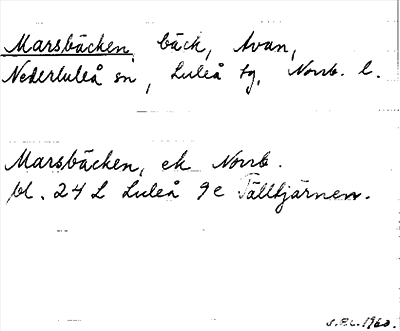 Marsbäcken, bäck, Avan,
Nederluleå sn, Luleå tg, Norrb. l.
Marsbäcken, ek Norrb.
bl. 24 L Luleå 9e Tälltjärnen.
1960.